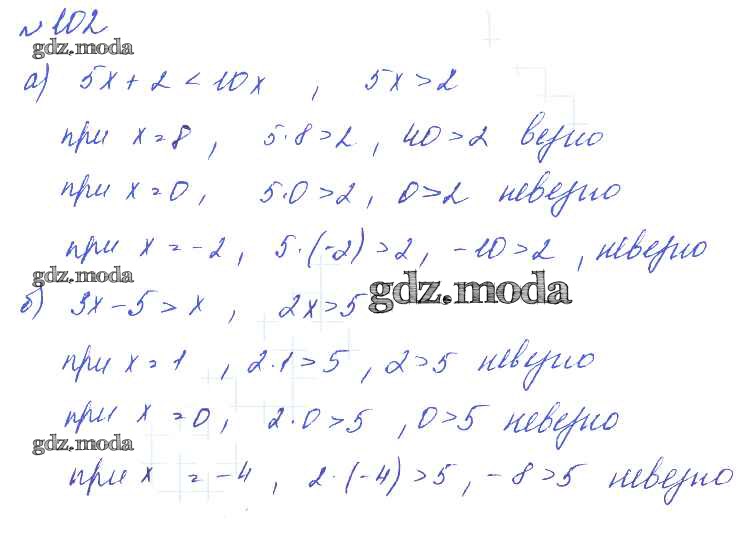 № 102
gdz.moda
а) 5x + 2 < 10x , 5x > 2
при x = 8 , 5·8 > 2 , 40 > 2 верно
при x = 0 , 5·0 > 2 , 0 > 2 неверно
при x = -2 , 5·(-2) > 2 , -10 > 2 , неверно
gdz.moda
gdz.moda
б) 3x - 5 > x , 2x > 5
при x = 1 , 2·1 > 5 , 2 > 5 неверно
при x = 0 , 2·0 > 5 , 0 > 5 неверно
gdz.moda
при x = -4 , 2·(-4) > 5 , -8 > 5 неверно